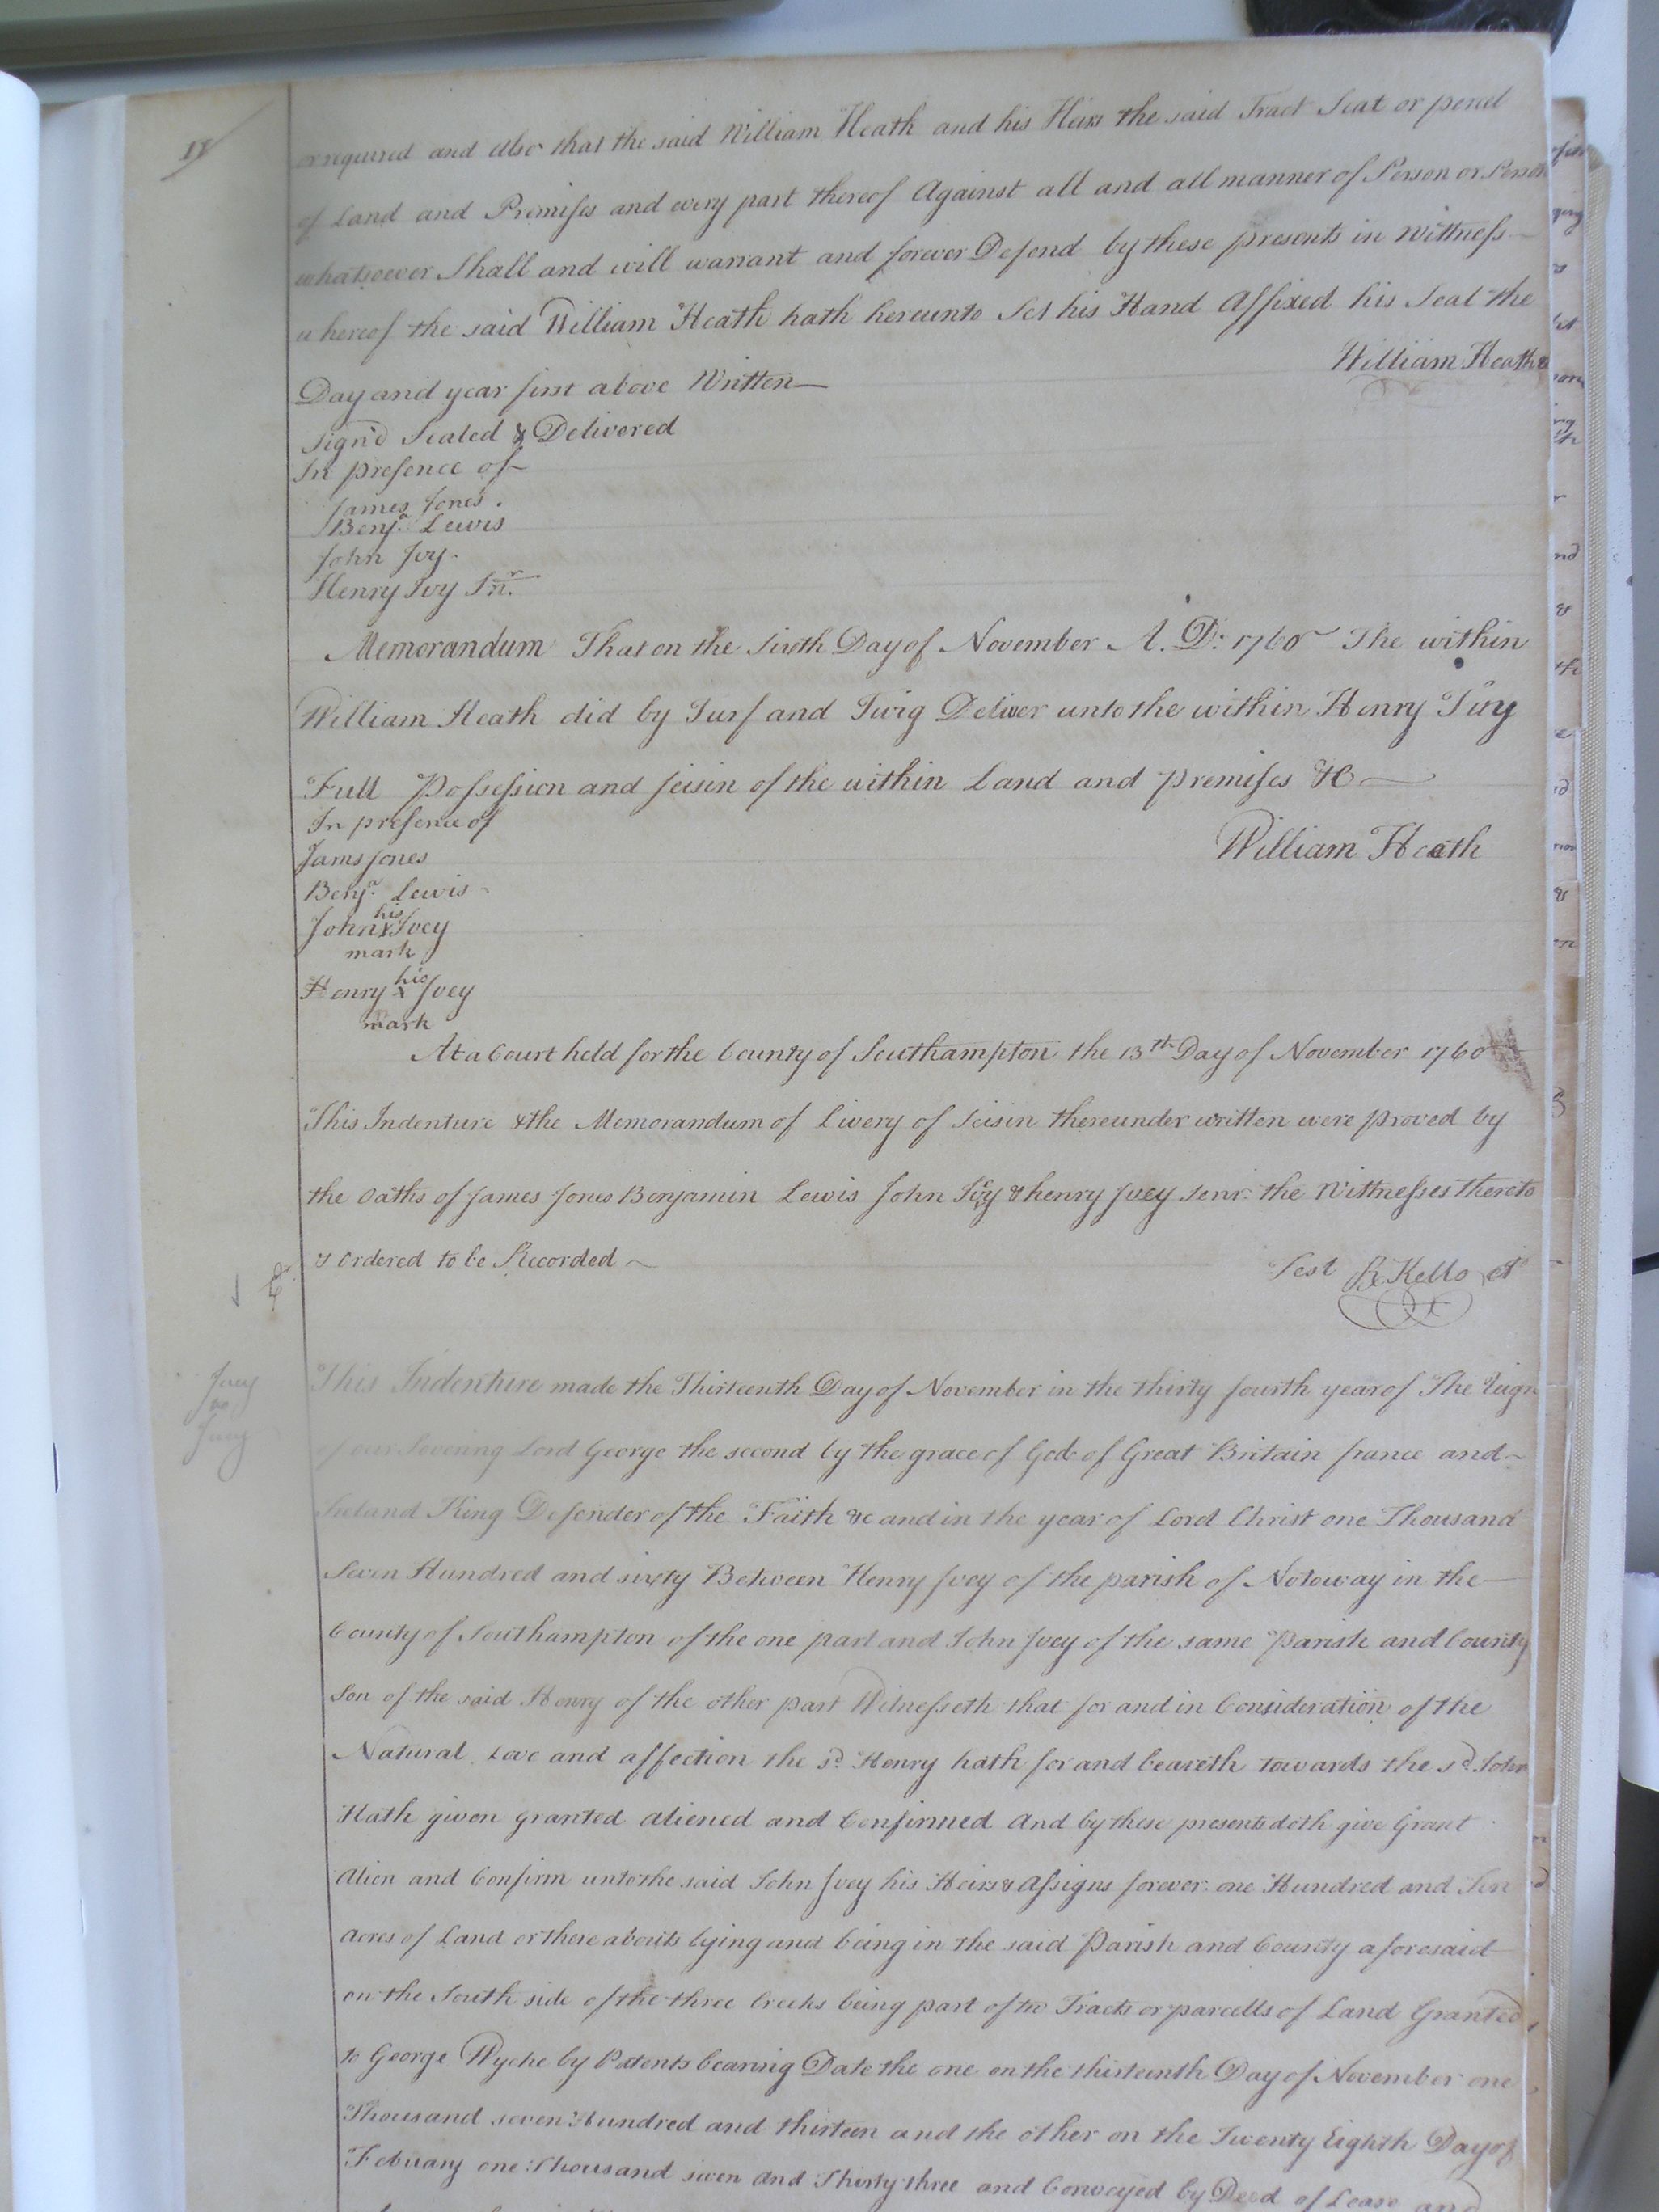 18
or required and also that the said William Heath and his Heirs the said Tract Seat or percel
of Land and Premises and every part thereof Against all and all manner of Person or Person
whatsoever Shall and will warrant and forever Defend by these presents in Wittness
whereof the said William Heath hath hereunto Set his Hand Affixed his Seal the
Day and year first above Written
William Heath
Sign'd Sealed & Delivered
In presence of
James Jones.
Benja. Lewis
John Ivy.
Henry Ivy Sr.
Memorandum That on the Sixth Day of November A. D: 1760 The within
William Heath did by Turf and Twig Deliver unto the within Henry Ivy
Full Possession and seisin of the within Land and premises &c
In presence of
William Heath
Jams Jones
Benja. Lewis
his
John x Ivey
mark
his
Henry x Ivey
mark
At a Court held for the County of Southampton the 13th Day of November 1760
This Indenture & the Memorandum of Livery of Seisin thereunder written were proved by
the Oaths of James Jones Benjamin Lewis John Ivy & henry Ivey Senr. the Wittnesses thereto
& Ordered to be Recorded
Test R Kello Ct
Ivey
to
Ivey
This Indenture made the Thirteenth Day of November in the thirty fourth year of The Reign
of our Sovering Lord George the second by the grace of God of Great Britain france and
Ireland King Defender of the Faith &c and in the year of Lord Christ one Thousand
Seven Hundred and sixty Between Henry Ivey of the parish of Notoway in the
County of Southampton of the one part and John Ivey of the same Parish and County
Son of the said Henry of the other part Witnesseth that for and in Consideration of the
Natural Love and affection the sd. Henry hath for and beareth towards the sd. John
Hath given granted aliened and Confirmed And by these presents doth give Grant
Alien and Confirm unto the said John Ivey his Heirs & Assigns forever one Hundred and Ten
Acres of Land or there abouts lying and being in the said Parish and County aforesaid
on the South side of the three Creeks being part of two Tracts or parcells of Land Granted
to George Wyche by Patents bearing Date the one on the thirteenth Day of November one
Thousand seven Hundred and thirteen and the other on the Twenty Eighth Day of
Febuary one Thousand seven and Thirty three and Conveyed by Deed of Lease and